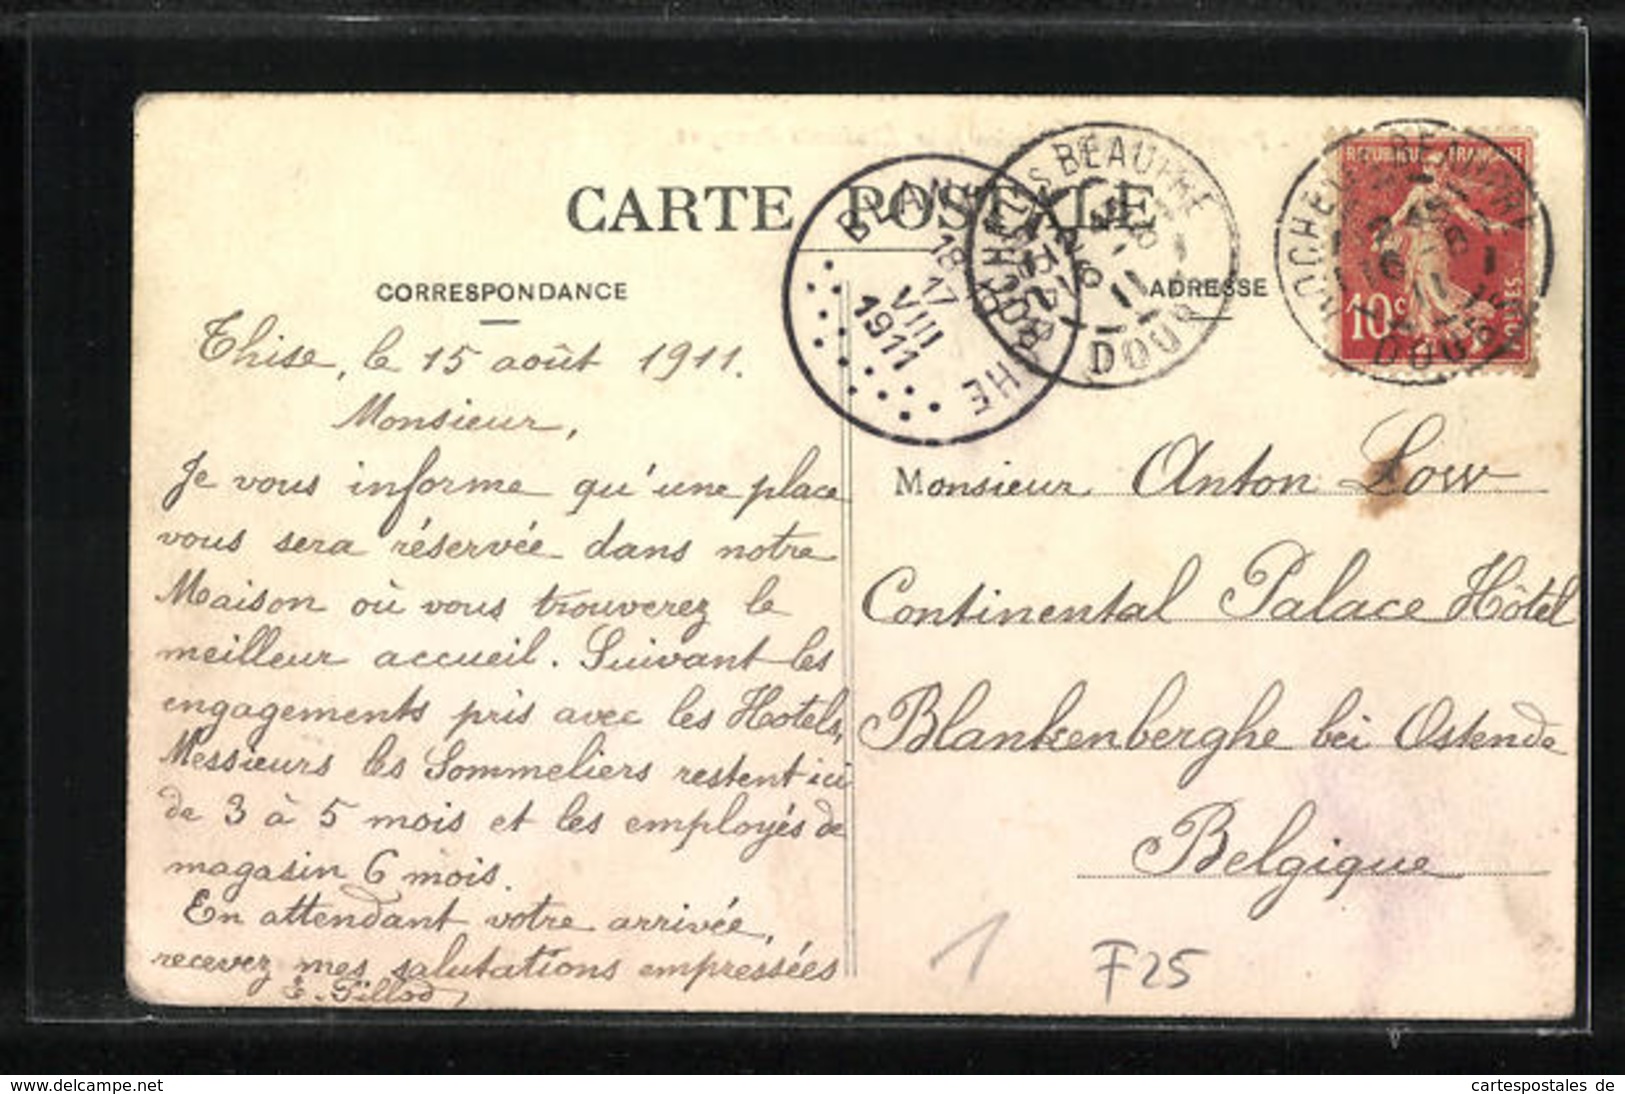 CARTE POSTALE
CORRESPONDANCE
ADRESSE
BLANKENBERGHE
18
17
VIII
1911
ROCHE LES BEAUPRE
DOUBS
REPUBLIQUE FRANÇAISE
10c
POSTES
Thise, le 15 août 1911.
Monsieur,
Je vous informe qu'une place
vous sera réservée dans notre
Maison où vous trouverez le
meilleur accueil. Suivant les
engagements pris avec les Hotels,
Messieurs les Sommeliers restent ici
de 3 à 5 mois et les employés de
magasin 6 mois.
En attendant votre arrivée,
recevez mes salutations empressées
E. Pillod
Monsieur Anton Low
Continental Palace Hôtel
Blankenberghe bei Ostende
Belgique
1
F25
www.delcampe.net
cartespostales de